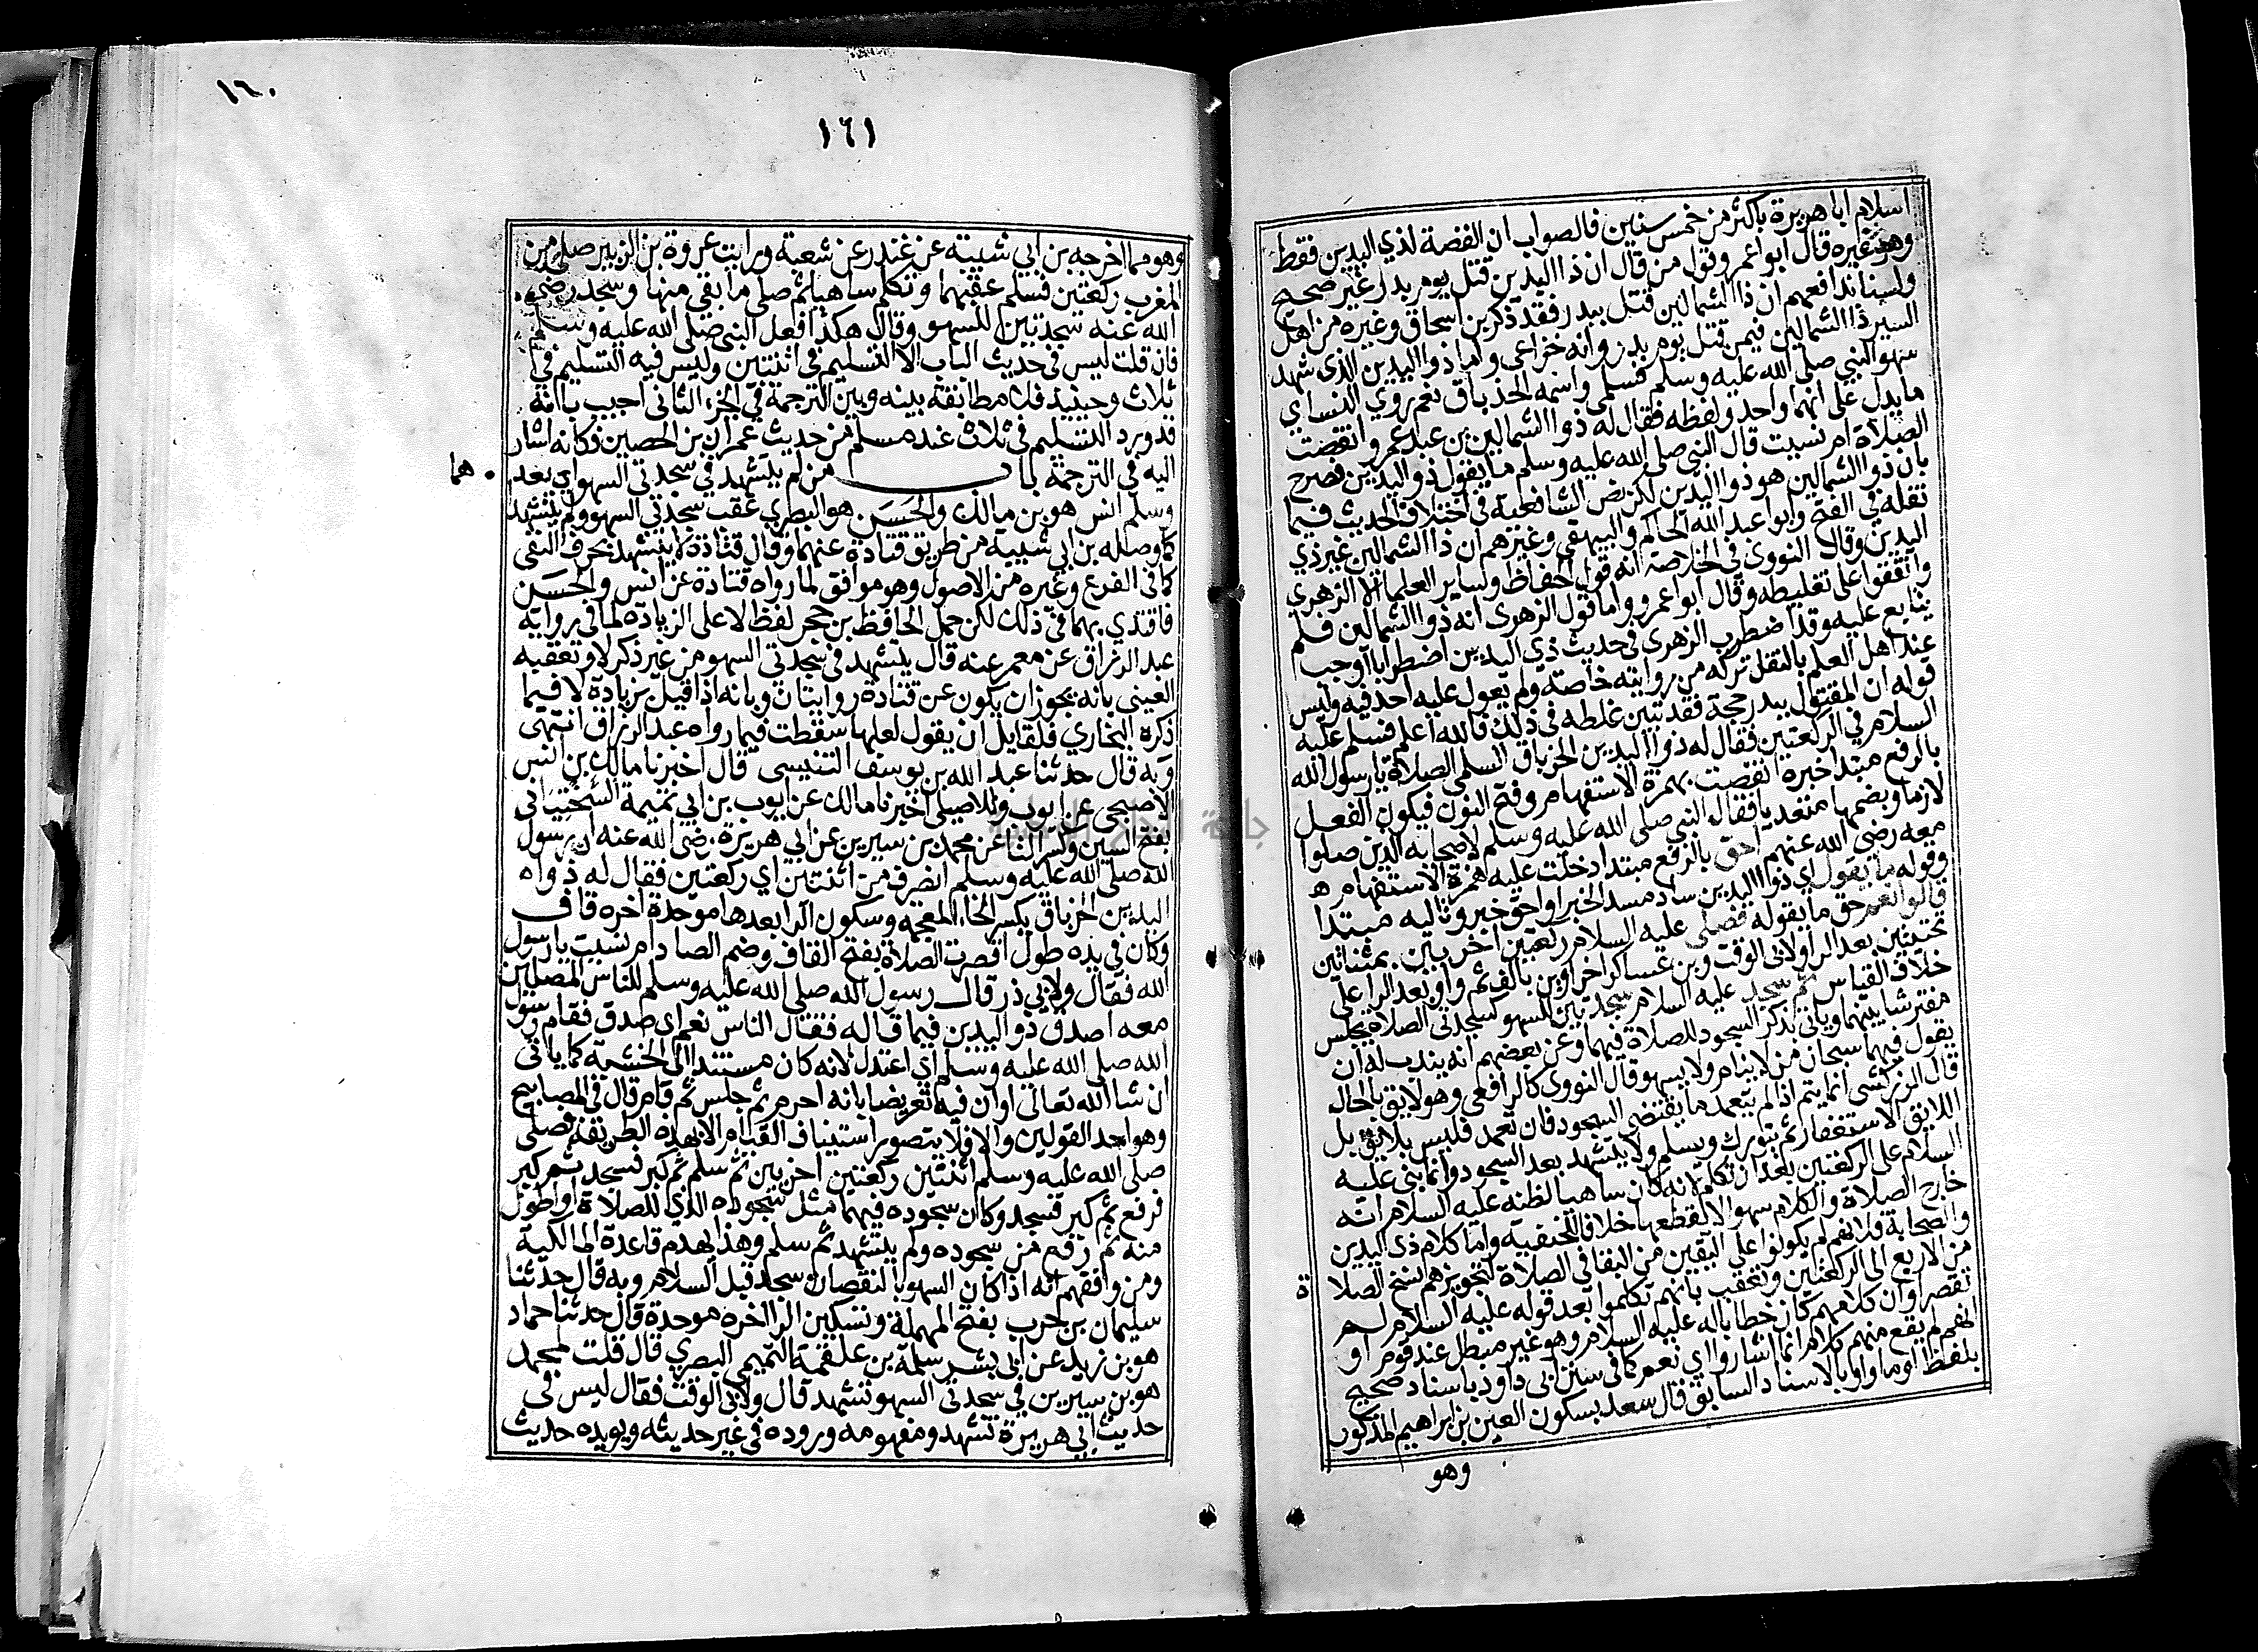 اسلام ابا هريرة باكثر من خمس سنين فالصواب ان القصة لذي اليدين فقط
وهو غيره قال ابو عمر وقول من قال ان ذا اليدين قتل يوم بدر غير صحيح
ولسنا ندافعهم ان ذا الشمالين قتل ببدر فقد ذكر بن اسحاق وغيره من اهل
السير ذا الشمالين فيمن قتل يوم بدر وانه خزاعي واما ذو اليدين الذي شهد
سهو النبي صلى الله عليه وسلم فسلمي واسمه الخرباق نعم روي النساي
ما يدل على انهما واحد ولفظه فقال له ذو الشمالين بن عبد عمرو انقصت
الصلاة ام نسيت قال النبي صلى الله عليه وسلم ما يقول ذو اليدين فصرح
بان ذو الشمالين هو ذو اليدين لكن نص الشافعية في اختلاف الحديث فيما
نقله في الفتح وابو عبد الله الحاكم والبيهقي وغيرهم ان ذا الشمالين غير ذي
اليدين وقال النووي في الخلاصة انه قول الحفاظ وساير العلما الا الزهري
واتفقوا على تغليطه وقال ابو عمرو واما قول الزهري انه ذو الشمالين فلم
يتابع عليه وقد اضطرب الزهري في حديث ذي اليدين اضطرابا اوجب
عند اهل العلم بالنقل تركه من روايته خاصة ولم يعول عليه احد فيه وليس
قوله ان المقتول ببدر حجة فقد تبين غلطه في ذلك فالله اعلم فسلم عليه
السلام في الركعتين فقال له ذو اليدين الخرباق السلمي الصلاة يا رسول الله
بالرفع مبتدا خبره انقصت بهمزة الاستفهام وفتح النون فيكون الفعل
لازما وبضمها متعديا فقال النبي صلى الله عليه وسلم لاصحابه الذين صلوا
معه رضي الله عنهم احق بالرفع مبتدا دخلت عليه همزة الاستفهام ه
وقوله ما يقول اي ذو اليدين ساد مسد الخبر او احق خبر وتاليه مبتدا
قالوا نعم حق ما يقوله فصلى عليه السلام ركعتين اخريين بمثناتين
تحتيتين بعد الرا ولابي الوقت وبن عساكر اخراوين بالف ثم واو بعد الرا على
خلاف القياس ثم سجد عليه السلام سجدتين للسهو كسجدتي الصلاة يجلس
مفترشا بينهما وياتي بذكر السجود للصلاة فيهما وعن بعضهم انه يندب له ان
يقول فيهما سبحان من لا ينام ولا يسهو قال النووي كالرافعي وهو لايق بالحال
قال الزركشي انما يتم اذا لم يتعمد ما يقتضي السجود فان تعمد فليس بلايق بل
اللايق الاستغفار ثم يتورك ويسلم ولا يتشهد بعد السجود وانما بنى عليه
السلام على الركعتين بعد ان تكلم لانه كان ساهيا لظنه عليه السلام انه
خارج الصلاة والكلام سهوا لا يقطعها خلافا للحنفية واما كلام ذي اليدين
والصحابة فلانهم لم يكونوا على اليقين من البقا في الصلاة لتجويزهم نسخ الصلا ة
من الاربع الى الركعتين وتعقب بانهم تكلموا بعد قوله عليه السلام لم
تقصر او ان كلامهم كان خطابا له عليه السلام وهو غير مبطل عند قوم او
انهم لم يقع منهم كلام انما اشاروا اي نعم كما في سنن ابي داود باسناد صحيح
بلفظ اوماوا وبالاسناد السابق قال سعد بسكون العين بن ابراهيم المذكور
وهو
١٦٠
١٦١
وهو مما اخرجه بن ابي شيبة عن غندر عن شعبة ورايت عروة بن الزبير صلى من
المغرب ركعتين فسلم عقبهما وتكلم ساهيا ثم صلى ما بقي منها وسجد رضي
الله عنه سجدتين للسهو وقال هكذا فعل النبي صلى الله عليه وسلم
فان قلت ليس في حديث الباب الا التسليم في اثنتين وليس فيه التسليم في
ثلاث وحينيذ فلا مطابقة بينه وبين الترجمة في الجزء الثاني اجيب بانه
قد ورد التسليم في ثلاث عند مسلم من حديث عمران بن الحصين فكانه اشار
اليه في الترجمة باب من لم يتشهد في سجدتي السهو اي بعد هما
وسلم انس هو بن مالك والحسن هو البصري عقب سجدتي السهو ولم يتشهد
كما وصله بن ابي شيبة من طريق قتادة عنهما وقال قتادة لا يتشهد بحرف النفي
كما في الفرع وغيره من الاصول وهو موافق لما رواه قتادة عن انس والحسن
فاقتدي بهما في ذلك لكن حمل الحافظ بن حجر لفظ لا على الزيادة لما في رواية
عبد الرزاق عن معمر عنه قال يتشهد في سجدتي السهو من غير ذكر لا وتعقبه
العيني بانه يجوز ان يكون عن قتادة روايتان وبانه اذا قيل بزيادة لا فيما
ذكره البخاري فلقايل ان يقول لعلها سقطت فيما رواه عبد الرزاق انتهى
وبه قال حدثنا عبد الله بن يوسف التنيسي قال اخبرنا مالك بن انس
الاصبحي عن ايوب وللاصيلي اخبرنا مالك عن ايوب بن ابي تميمة السختياني
بفتح السين وكسر التا عن محمد بن سيرين عن ابي هريرة رضي الله عنه ان رسول
الله صلى الله عليه وسلم انصرف من اثنتين اي ركعتين فقال له ذو ا ه
اليدين الخرباق بكسر الخاء المعجمة وسكون الرا بعدها موحدة اخره قاف
وكان في يده طول اقصرت الصلاة بفتح القاف وضم الصاد ام نسيت يا رسول
الله فقال ولابي ذر قال رسول الله صلى الله عليه وسلم للناس المصلين
معه اصدق ذو اليدين فيما قاله فقال الناس نعم اي صدق فقام رسول
الله صلى الله عليه وسلم اي اعتدل لانه كان مستندا الى الخشبة كما ياتي
ان شا الله تعالى او ان فيه تعريضا بانه احرم ثم جلس ثم قام قال في المصابيح
وهو احد القولين والا فلا يتصور استيناف القيام الا بهذه الطريقة فصلى
صلى الله عليه وسلم اثنتين ركعتين اخريين ثم سلم ثم كبر فسجد ثم كبر
فرفع ثم كبر فسجد وكان سجوده فيهما مثل سجوده الذي للصلاة او اطول
منه ثم رفع من سجوده ولم يتشهد ثم سلم وهذا يهدم قاعدة المالكية
ومن وافقهم انه اذا كان السهو بالنقصان سجد قبل السلام وبه قال حدثنا
سليمان بن حرب بفتح المهملة وتسكين الرا اخره موحدة قال حدثنا حماد
هو بن زيد عن ابي بشر سلمة بن علقمة التميمي البصري قال قلت لمحمد
هو بن سيرين في سجدتي السهو تشهد قال ولابي الوقت فقال ليس في
حديث ابي هريرة تشهد ومفهومه وروده في غير حديثه ويويده حديث